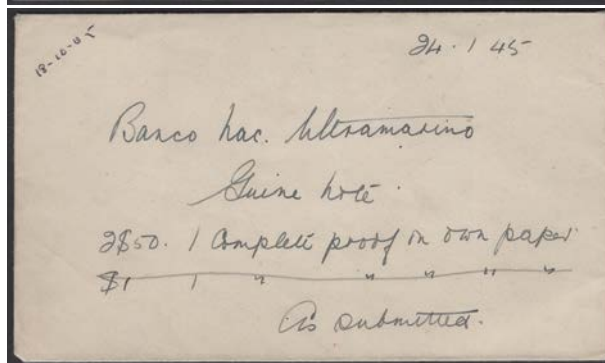 18-10-45
24. 1 45
Banco Nac. Ultramarino
Guine Note.
2$50. 1 Complete proof in own paper
$1 1 " " " " "
As submitted.